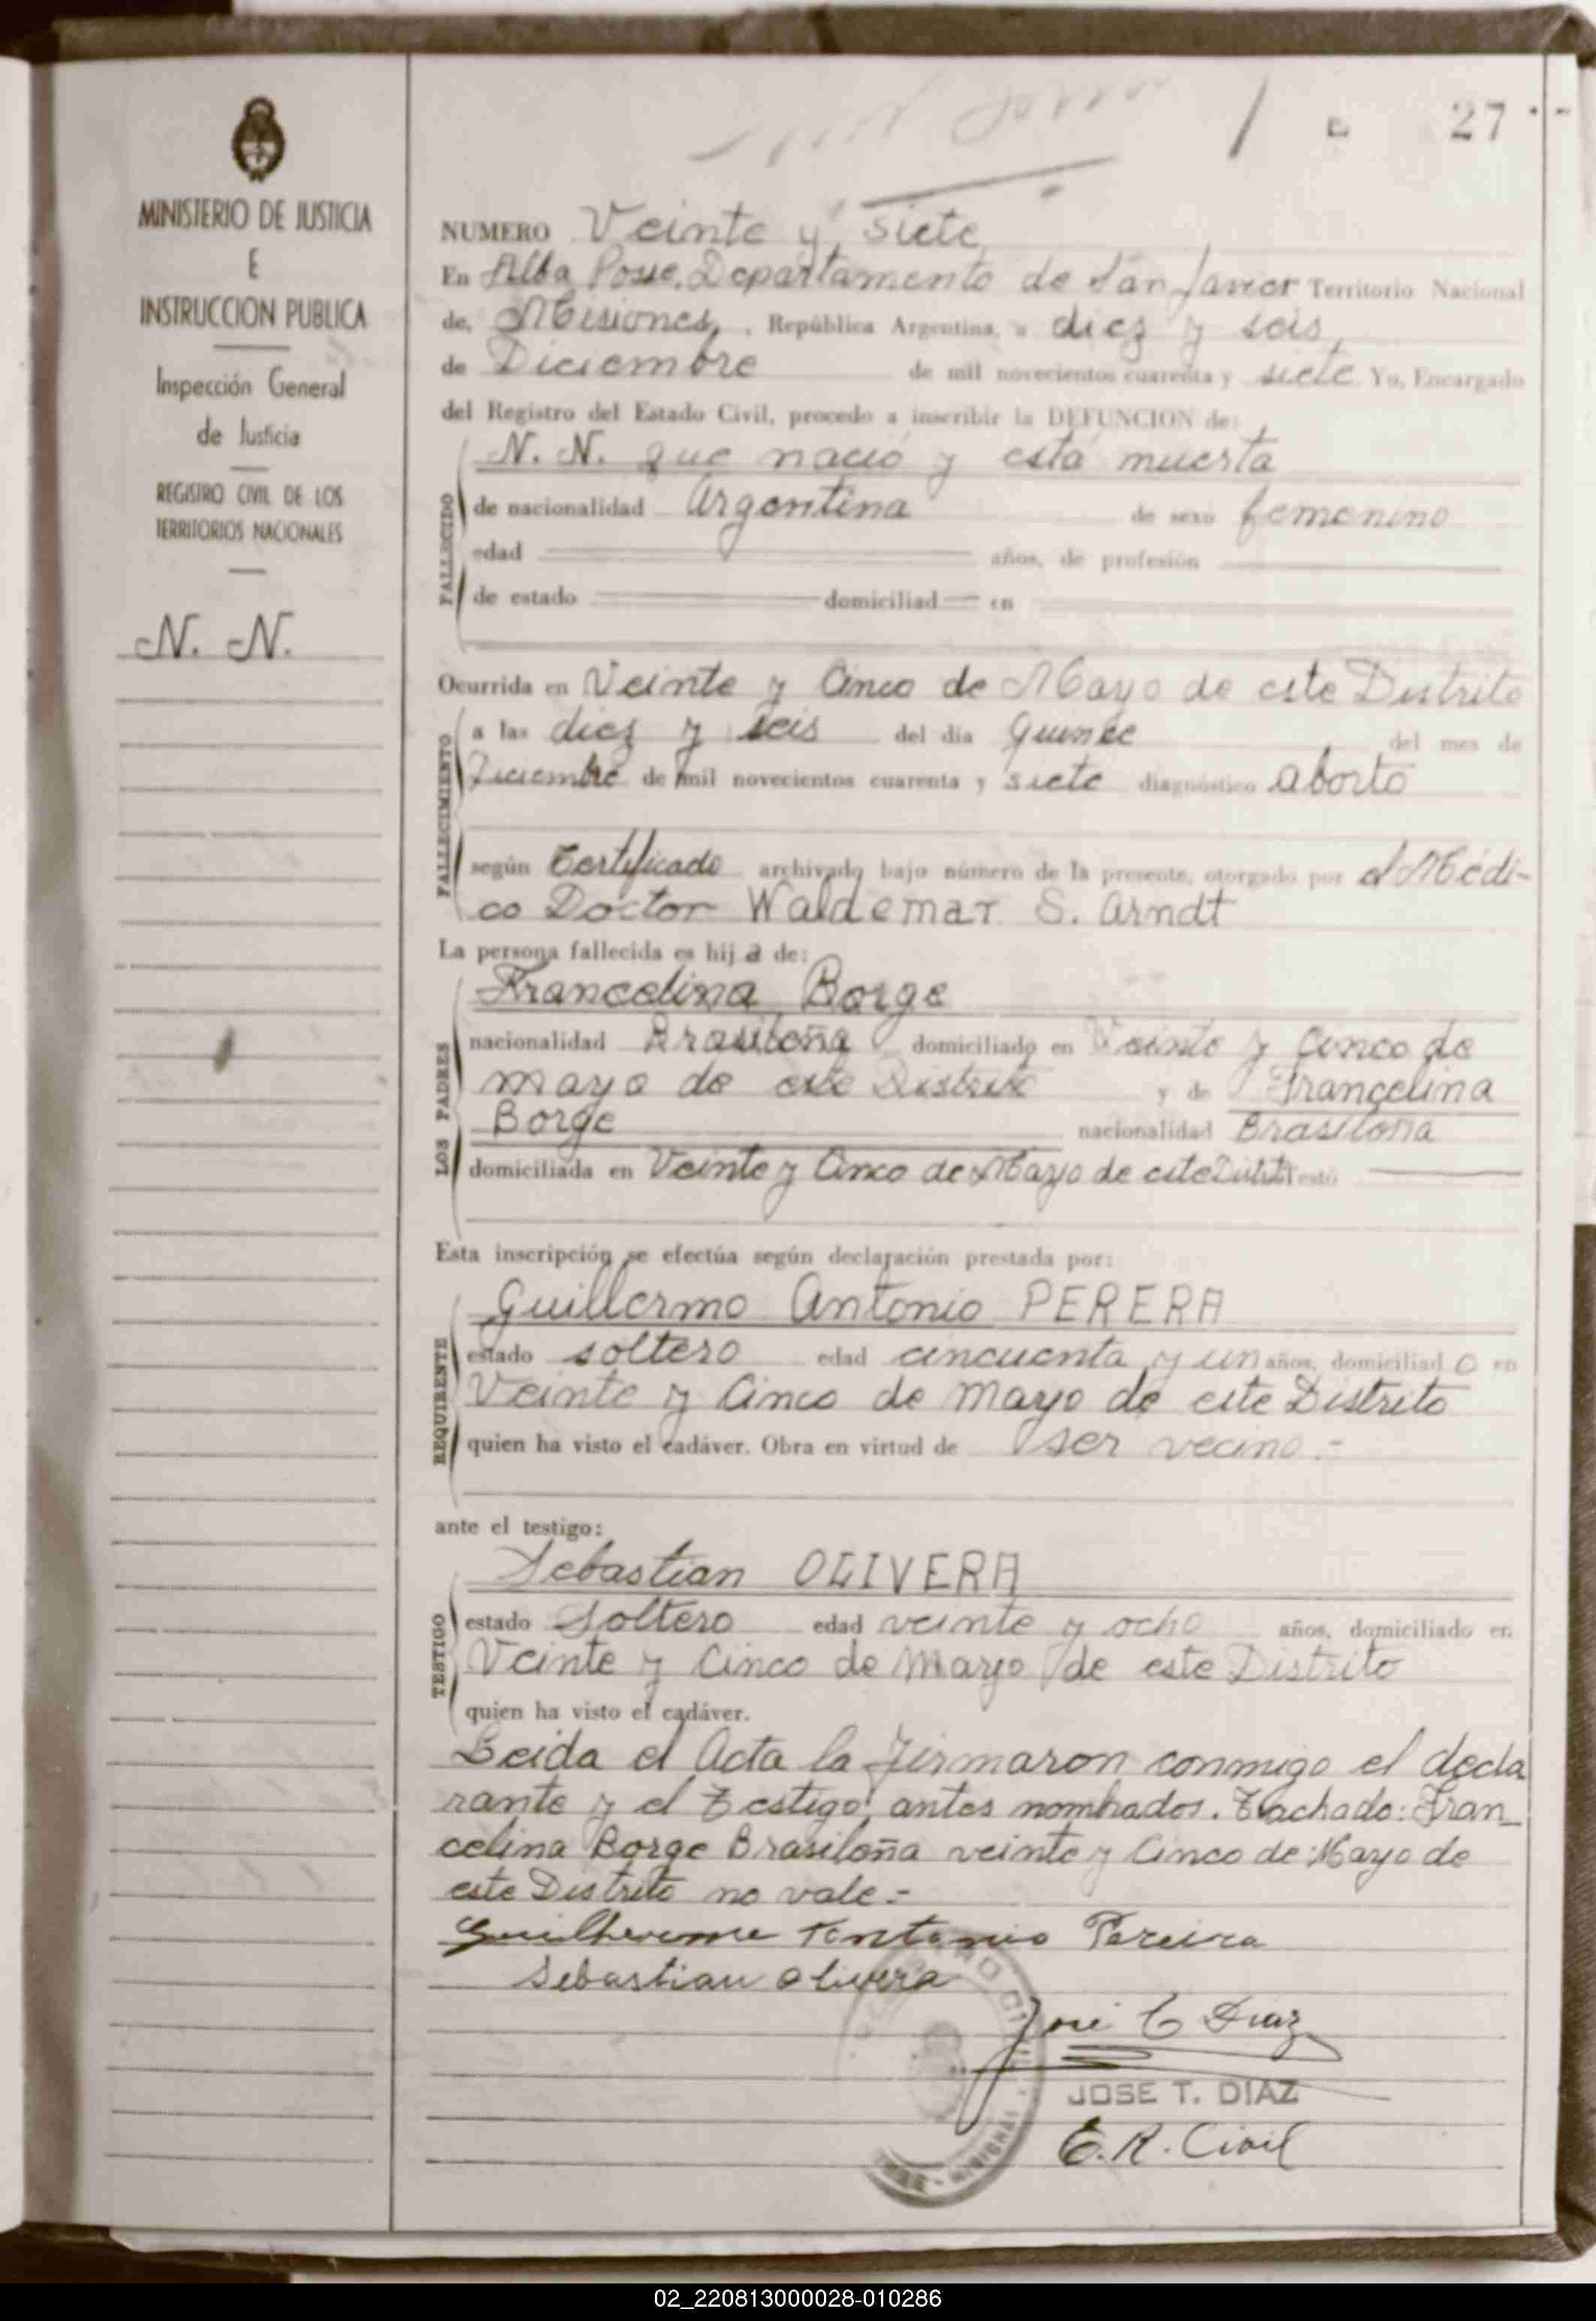 27
MINISTERIO DE JUSTICIA
E
INSTRUCCION PUBLICA
Inspección General
de Justicia
REGISTRO CIVIL DE LOS
TERRITORIOS NACIONALES
N. N.
NUMERO Veinte y siete
En Alba Posse, Departamento de San Javier Territorio Nacional
de, Misiones, República Argentina, a diez y seis,
de Diciembre de mil novecientos cuarenta y siete Yo, Encargado
del Registro del Estado Civil, procedo a inscribir la DEFUNCION de:
N. N. que nació y está muerta
FALLECIDO
de nacionalidad Argentina de sexo femenino
edad años, de profesión
de estado domiciliad en
Ocurrida en Veinte y Cinco de Mayo de este Distrito
FALLECIMIENTO
a las diez y seis del día Quince del mes de
Diciembre de mil novecientos cuarenta y siete diagnóstico aborto
según Certificado archivado bajo número de la presente, otorgado por el Médi-
co Doctor Waldemar S. Arndt
La persona fallecida es hija de:
LOS PADRES
Francelina Borge
nacionalidad Brasileña domiciliado en Veinte y Cinco de
mayo de este Distrito y de Francelina
Borge nacionalidad Brasileña
domiciliada en Veinte y Cinco de Mayo de este Distrito
Esta inscripción se efectúa según declaración prestada por:
REQUIRENTE
Guillermo Antonio PERERA
estado soltero edad cincuenta y un años, domiciliado en
Veinte y Cinco de Mayo de este Distrito
quien ha visto el cadáver. Obra en virtud de ser vecino.-
ante el testigo:
TESTIGO
Sebastian OLIVERA
estado Soltero edad veinte y ocho años, domiciliado en
Veinte y Cinco de Mayo de este Distrito
quien ha visto el cadáver.
Leida el Acta la firmaron conmigo el decla
rante y el Testigo antes nombrados. Tachado: Fran_
celina Borge Brasileña veinte y Cinco de Mayo de
este Distrito no vale.-
Guilherme Antonio Pereira
Sebastian Olivera
José T Diaz
JOSE T. DIAZ
E.R. Civil
02_220813000028-010286